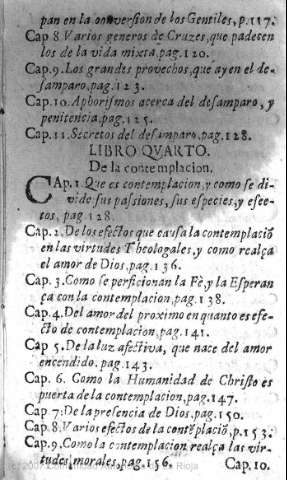 pan en la conversion de los Gentiles, p.117.
Cap 8 Varios generos de Cruzes, que padecen
los de la vida mixta, pag.120.
Cap.9. Los grandes provechos, que ay en el de-
samparo, pag.123.
Cap.10. Aphorismos acerca del desamparo, y
penitencia, pag.125.
Cap.11. Secretos del desamparo, pag.128.
LIBRO QVARTO.
De la contemplacion.
CAp.1. Que es contemplacion, y como se di-
vide, sus passiones, sus especies, y efec-
tos, pag.128.
Cap.2. De los efectos que causa la contemplaciō
en las virtudes Theologales, y como realça
el amor de Dios, pag.136.
Cap.3. Como se perficionan la Fè, y la Esperan
ça con la contemplacion, pag.138.
Cap.4. Del amor del proximo en quanto es efe-
cto de contemplacion, pag.141.
Cap 5. De la luz afectiva, que nace del amor
encendido, pag.143.
Cap. 6. Como la Humanidad de Christo es
puerta de la contemplacion, pag.147.
Cap 7. De la presencia de Dios, pag.150.
Cap.8. Varios efectos de la contēplaciō, p.153.
Cap.9. Como la contemplacion realça las vir-
tudes morales, pag.156. Cap.10.
Rioja